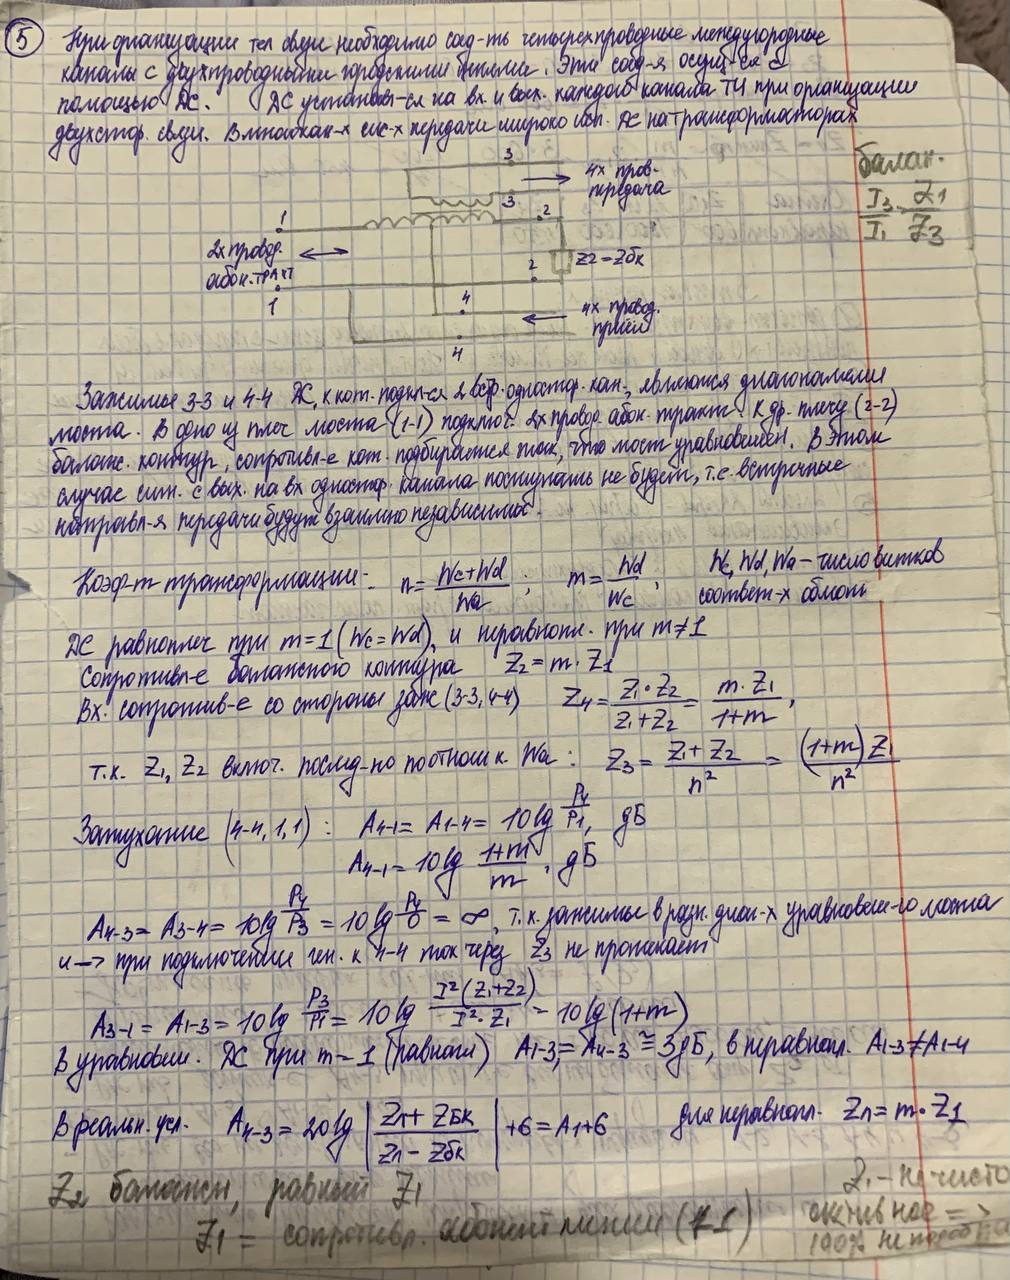 5 При организации тел связи необходимо соед-ть четырехпроводные междугородные
каналы с двухпроводными городскими линиями. Эти соед-я осущ-ся с
помощью ДС. ДС установл-ся на вх. и вых. каждого канала ТЧ при организации
двухстор. связи. В многокан-х сис-х передачи широко исп. ДС на трансформаторах
балан.
I3/I1 = Z1/Z3
3
4х пров.
передача
3
2
1
2х провод.
абон.тракт
1
Z2=Zбк
2
4
4х провод.
приём
4
Зажимы 3-3 и 4-4 ДС, к кот. подкл-ся 2 встр. одностор. кан-, являются диагоналями
моста. В одно из плеч моста (1-1) подключ. 2х провод. абон. тракт. К др. плечу (2-2)
баланс. контур, сопротивл-е кот. подбирается так, что мост уравновешен. В этом
случае сигн. с вых. на вх одностор. канала поступать не будет, т.е. встречные
направл-я передачи будут взаимно независимы.
Коэф-т трансформации: n = (Wc+Wd)/Wa ; m = Wd/Wc ; Wc, Wd, Wa – число витков
соответ-х обмот
ДС равноплеч при m=1 (Wc=Wd), и неравнопл. при m≠1
Сопротивл-е балансного контура Z2 = m·Z1
Вх. сопротив-е со стороны заж (3-3, 4-4) Z4 = (Z1·Z2)/(Z1+Z2) = (m·Z1)/(1+m),
т.к. Z1, Z2 включ. послед-но по отнош к Wa : Z3 = (Z1+Z2)/n² = ((1+m)Z1)/n²
Затухание (4-4, 1,1) : A4-1 = A1-4 = 10lg P4/P1, дБ
A4-1 = 10lg (1+m)/m, дБ
A4-3 = A3-4 = 10lg P4/P3 = 10lg P4/0 = ∞, т.к. зажимы в разн. диаг-х уравновеш-го моста
и –> при подключении ген. к 4-4 ток через Z3 не протекает
A3-1 = A1-3 = 10lg P3/P1 = 10lg (I²(Z1+Z2))/(I²·Z1) = 10lg(1+m)
В уравновеш. ДС при m=1 (равнопл) A1-3, = A4-3 ≅ 3дБ, в неравнопл. A1-3≠A1-4
В реальн. усл. A4-3 = 20lg |(Zл+Zбк)/(Zл-Zбк)| +6 = A1+6 для неравнопл. Zл=m·Z1
Z2 балансн, равный Z1
Z1 = сопротивл. абонент линии (1)
Z1 – не чисто
активное =>
100% не